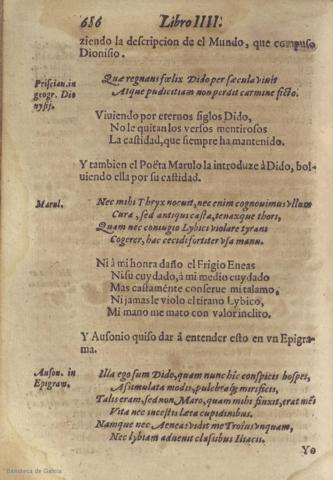 686 Libro IIII.
ziendo la descripcion de el Mundo, que compuso
Dionisio.
Priscian. in
geogr. Dio
nysij.
Quæ regnans fœlix Dido per sæcula viuit
Atque pudicitiam non perdit carmine ficto.
Viuiendo por eternos siglos Dido,
No le quitan los versos mentirosos
La castidad, que siempre ha mantenido.
Y tambien el Poëta Marulo la introduze à Dido, bol-
uiendo ella por su castidad.
Marul.
Nec mihi Thryx nocuit, nec enim cognouimus vllum
Cura, sed antiqui casta, tenaxque thori,
Quam nec coniugio Lybici violare tyrani
Cogerer, hac cecidi fortiter vsa manu.
Ni à mi honra daño el Frigio Eneas
Ni su cuydado, à mi medio cuydado
Mas castamente conserue mi talamo,
Ni jamas le violo el tirano Lybico,
Mi mano me mato con valor inclito.
Y Ausonio quiso dar á entender esto en vn Epigra-
ma.
Auson. in
Epigram.
Illa ego sum Dido, quam nunc hîc conspicis hospes,
Assimulata modis, pulchraq; mirificis,
Talis eram, sed non, Maro, quam mihi finxit, erat mẽs
Vita nec incestis læta cupidinibus.
Namque nec Aeneas vidit me Troius vnquam,
Nec Lybiam aduenit classibus Iliacis.
Yo
Biblioteca de Galicia